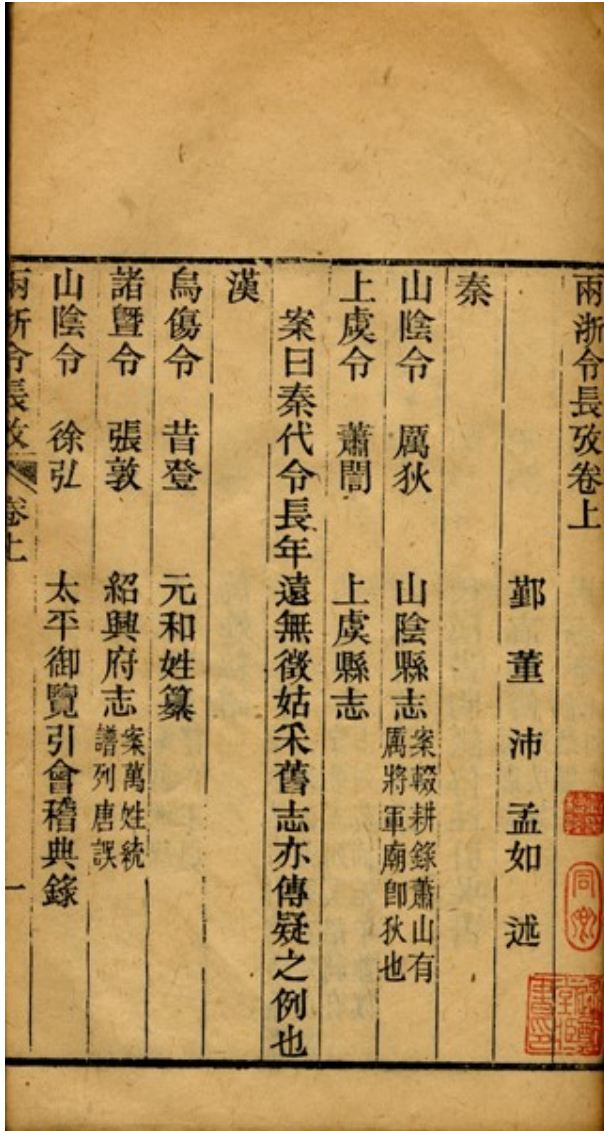 兩浙令長攷卷上
鄞董沛孟如述
秦
山陰令 厲狄 山陰縣志 案輟耕錄蕭山有厲將軍廟卽狄也
上虞令 蕭閣 上虞縣志
案曰秦代令長年遠無徵姑采舊志亦傳疑之例也
漢
烏傷令 昔登 元和姓纂
諸曁令 張敦 紹興府志 案萬姓統譜列唐誤
山陰令 徐弘 太平御覽引會稽典錄
兩浙令長攷 卷上 一